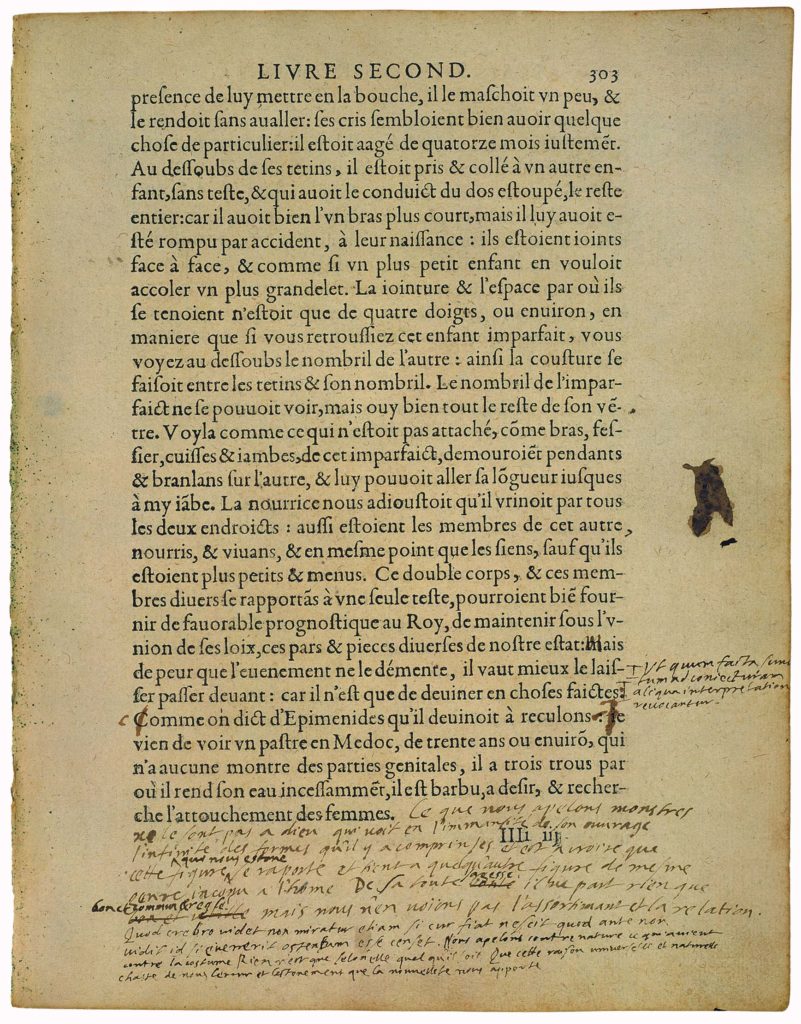 LIVRE SECOND. 303
presence de luy mettre en la bouche, il le maschoit vn peu, &
le rendoit sans aualler: ses cris sembloient bien auoir quelque
chose de particulier: il estoit aagé de quatorze mois iustemẽt.
Au dessoubs de ses tetins, il estoit pris & collé à vn autre en-
fant, sans teste, & qui auoit le conduict du dos estoupé, le reste
entier: car il auoit bien l'vn bras plus court, mais il luy auoit e-
sté rompu par accident, à leur naissance: ils estoient ioints
face à face, & comme si vn plus petit enfant en vouloit
accoler vn plus grandelet. La iointure & l'espace par où ils
se tenoient n'estoit que de quatre doigts, ou enuiron, en
maniere que si vous retroussiez cet enfant imparfait, vous
voyez au dessoubs le nombril de l'autre: ainsi la cousture se
faisoit entre les tetins & son nombril. Le nombril de l'impar-
faict ne se pouuoit voir, mais ouy bien tout le reste de son vẽ-
tre. Voyla comme ce qui n'estoit pas attaché, cõme bras, fes-
sier, cuisses & iambes, de cet imparfaict, demouroiẽt pendants
& branlans sur l'autre, & luy pouuoit aller sa lõgueur iusques
à my iãbe. La nourrice nous adioustoit qu'il vrinoit par tous
les deux endroicts: aussi estoient les membres de cet autre,
nourris, & viuans, & en mesme point que les siens, sauf qu'ils
estoient plus petits & menus. Ce double corps, & ces mem-
bres diuers se rapportãs à vne seule teste, pourroient biẽ four-
nir de fauorable prognostique au Roy, de maintenir sous l'v-
nion de ses loix, ces pars & pieces diuerses de nostre estat: Mais
de peur que l'euenement ne le démente, il vaut mieux le lais-
ser passer deuant: car il n'est que de deuiner en choses faictes:
ut quum facta sunt
tum ad coniecturam
aliqua interpretatione
reuocantur.
Comme on dict d'Epimenides qu'il deuinoit à reculons. Ie
vien de voir vn pastre en Medoc, de trente ans ou enuirõ, qui
n'a aucune montre des parties genitales, il a trois trous par
où il rend son eau incessammẽt, il est barbu, a desir, & recher-
che l'attouchement des femmes. Ce que nous apelons monstres
IIIi iij
ne le sont pas a dieu qui voit en l'immansite de son ouvrage
l'infinite des formes qu'il y a comprinses et est a croire que
cette figure qui nous estone se raporte et tient a quelqu'autre figure de mesme
genre incogneu a l'home De sa toute sagesse il ne part rien que
bon et commun et regle mais nous n'en voions pas l'assortimant et la relation.
Quod crebro videt non miratur etiam si cur fiat nescit quod ante non
vidit id si evenerit ostentum esse censet. Nous apelons contre nature ce qui avient
contre la costume Rien n'est que selon elle quel qu'il soit Que cette raison universelle et naturelle
chasse de nous l'errur et l'estonement que la nouvellete nous apporte